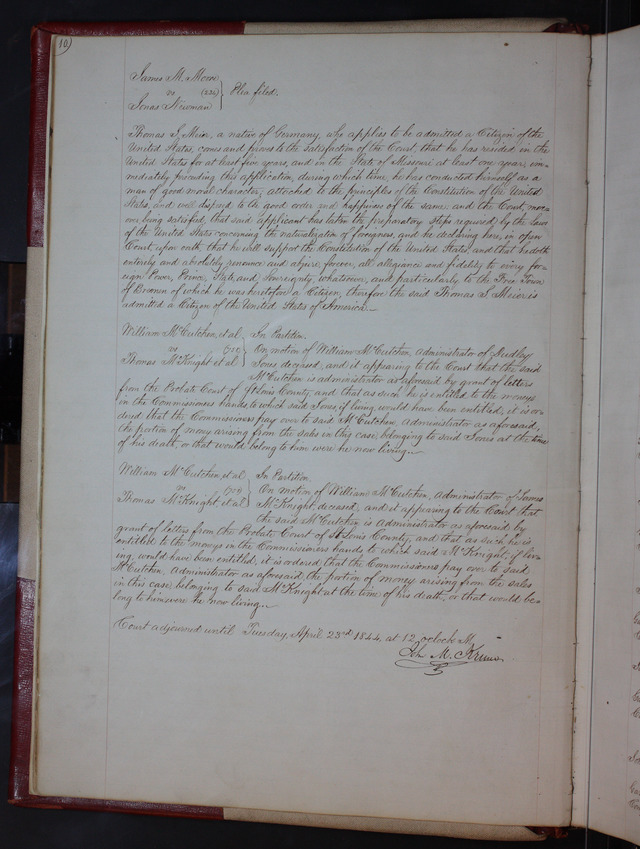 10
James M. More
vs (232) } Plea filed.
Jonas Newman
Thomas S. Meier, a native of Germany, who applies to be admitted a Citizen of the
United States, comes and proves to the satisfaction of the Court, that he has resided in the
United States for at least five years, and in the State of Missouri at least one year, im=
mediately preceding this application, during which time, he has conducted himself as a
man of good moral character, attached to the principles of the Constitution of the United
States, and well disposed to the good order and happiness of the same: and the Court more=
over being satisfied, that said applicant has taken the preparatory steps required by the laws
of the United States concerning the naturalization of foreigners, and he declaring here, in open
Court, upon oath, that he will support the Constitution of the United States, and that he doth
entirely and absolutely renounce and abjure forever, all allegiance and fidelity to every for=
eign Power, Prince, State and Sovereignty whatsoever, and particularly to the Free Town
of Bremen of which he was heretofore a Citizen, therefore the said Thomas S. Meier is
admitted a Citizen of the United States of America.
William McCutchen, et al. } In Partition.
vs } On motion of William McCutchen, administrator of Dudley
Thomas McKnight et al } Jones, deceased, and it appearing to the Court that the said
McCutchen is administrator as aforesaid by grant of letters
from the Probate Court of St Louis County, and that as such he is entitled to the moneys
in the Commissioners hands, to which said Jones if living would have been entitled, it is or=
dered that the Commissioners pay over to said McCutchen, administrator as aforesaid,
the portion of money arising from the sales in this case, belonging to said Jones at the time
of his death, or that would belong to him were he now living.
William McCutchen, et al. } In Partition.
vs } On motion of William McCutchen, Administrator of James
Thomas McKnight, et al } McKnight, deceased, and it appearing to the Court that
the said McCutchen is Administrator as aforesaid by
grant of letters from the Probate Court of St Louis County, and that as such he is
entitled to the moneys in the Commissioners hands to which said McKnight, if liv=
ing, would have been entitled, it is ordered that the Commissioners pay over to said
McCutchen, Administrator as aforesaid, the portion of money arising from the sales
in this case, belonging to said McKnight at the time of his death, or that would be=
long to him were he now living.
Court adjourned until Tuesday, April 23rd 1844, at 12 oclock M.
John M. Krum.